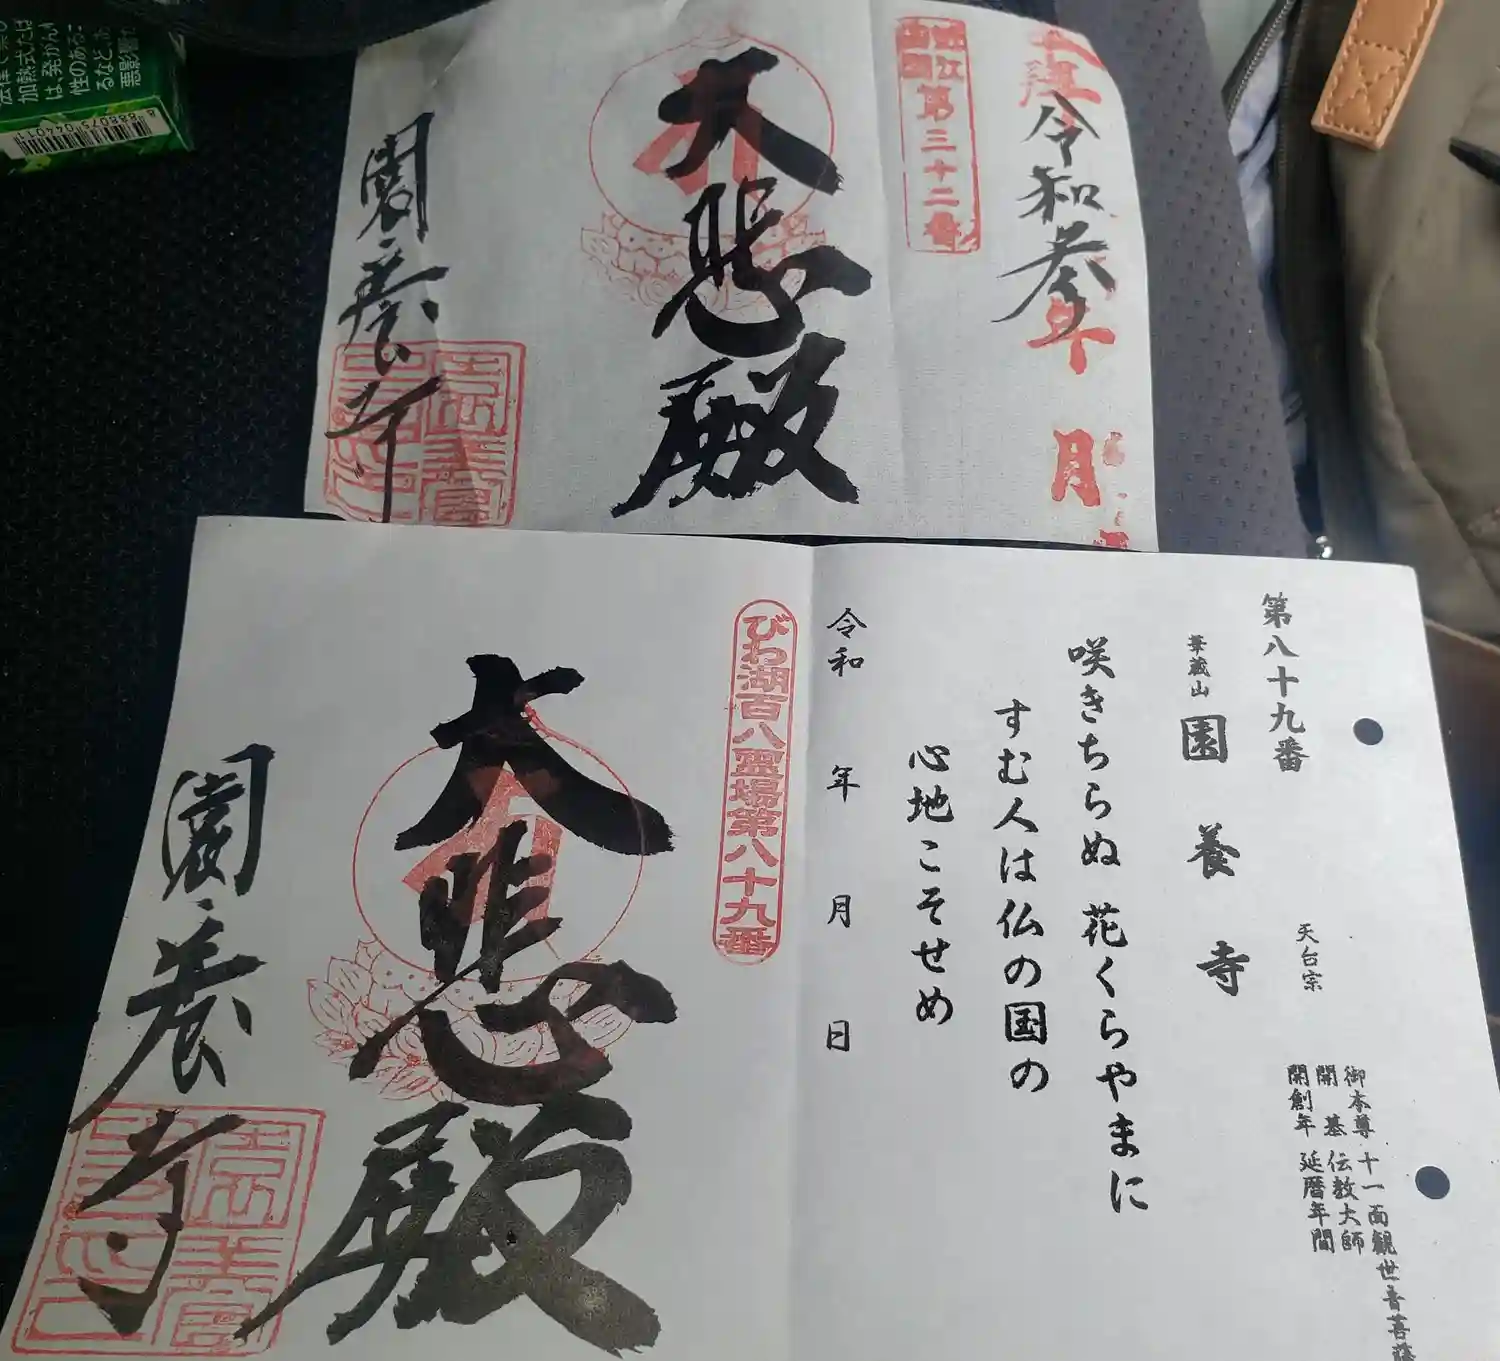 加熱式たば
は発がん
性のある
るなど
悪影響
8 888075 044011
令和参年
月
近江西国
第三十二番
大悲殿
園養寺
第八十九番
華蔵山
園養寺
天台宗
御本尊 十一面観世音菩薩
開基 伝教大師
開創年 延暦年間
咲きちらぬ 花くらやまに
すむ人は仏の国の
心地こそせめ
令和 年 月 日
びわ湖百八霊場第八十九番
大悲殿
園養寺